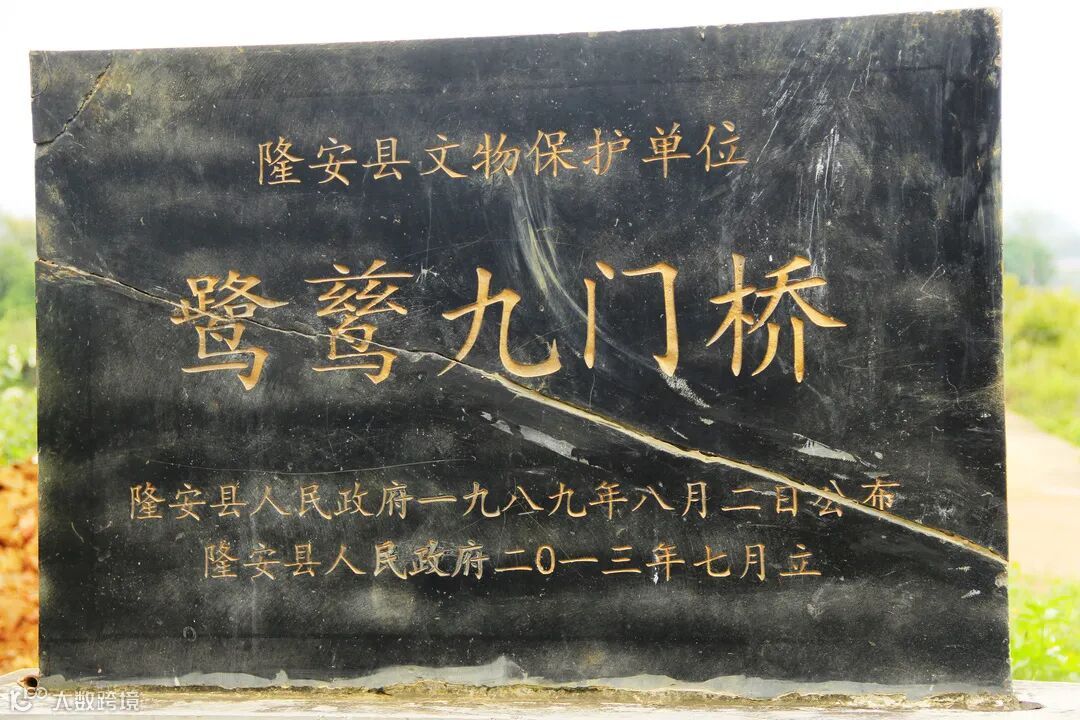 隆安县文物保护单位
鹭鹚九门桥
隆安县人民政府一九八九年八月二日公布
隆安县人民政府二0一三年七月立
大数跨境